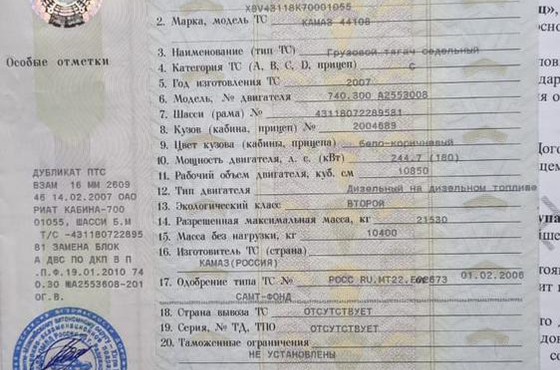 X8V43118K70001055
2. Марка, модель ТС КАМАЗ 44108
3. Наименование (тип ТС) Грузовой тягач седельный
Особые отметки
4. Категория ТС (A, B, C, D, прицеп) C
5. Год изготовления ТС 2007
6. Модель, № двигателя 740.300 А2553008
7. Шасси (рама) № 43118072289581
8. Кузов (кабина, прицеп) № 2004689
9. Цвет кузова (кабины, прицепа) бело-коричневый
10. Мощность двигателя, л. с. (кВт) 244.7 (180)
11. Рабочий объем двигателя, куб. см 10850
12. Тип двигателя Дизельный на дизельном топливе
13. Экологический класс ВТОРОЙ
14. Разрешенная максимальная масса, кг 21530
15. Масса без нагрузки, кг 10400
16. Изготовитель ТС (страна)
КАМАЗ(РОССИЯ)
17. Одобрение типа ТС № РОСС RU.МТ22. 01.02.2006
САМТ-ФОНД
18. Страна вывоза ТС ОТСУТСТВУЕТ
19. Серия, № ТД, ТПО ОТСУТСТВУЕТ
20. Таможенные ограничения
НЕ УСТАНОВЛЕНЫ
ДУБЛИКАТ ПТС
ВЗАМ 16 ММ 2609
46 14.02.2007 ОАО
РИАТ КАБИНА-700
01055, ШАССИ Б.Н
Т/С -431180722895
81 ЗАМЕНА БЛОК
А ДВС ПО ДКП В П
.П.Ф.19.01.2010 74
0.30 №А2553608-201
0Г.В.